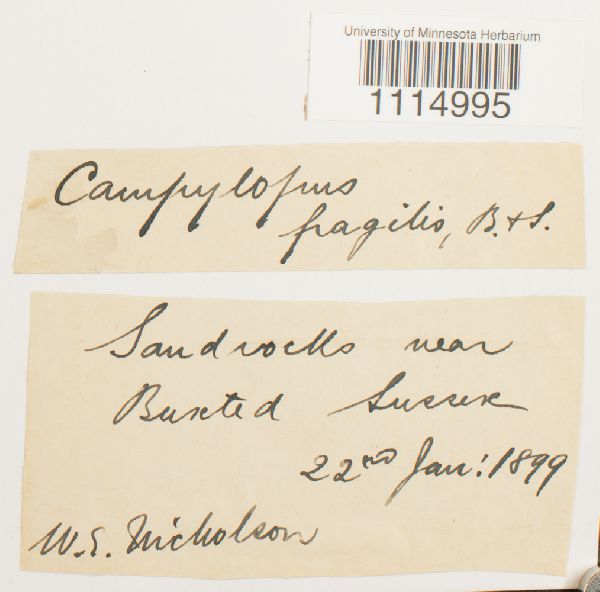 University of Minnesota Herbarium
1114995
Campylopus
fragilis, B. & S.
Sandrocks near
Buxted Sussex
22nd Jan: 1899
W.E. Nicholson